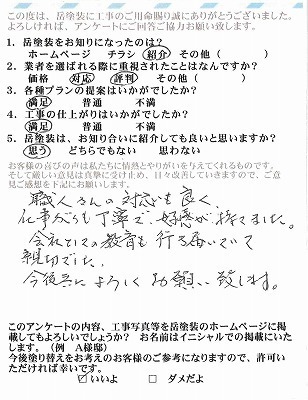 この度は、岳塗装に工事のご用命賜り誠にありがとうございました。
よろしければ、アンケートにご回答ご協力お願い致します。
1. 岳塗装をお知りになったのは？
ホームページ　チラシ　紹介　その他（　　　）
2. 業者を選ばれる際に重視されたことはなんですか？
価格　対応　評判　その他（　　　）
3. 各種プランの提案はいかがでしたか？
満足　普通　不満
4. 工事の仕上がりはいかがでしたか？
満足　普通　不満
5. 岳塗装は、お知り合いに紹介しても良いと思いますか？
思う　どちらでもない　思わない
お客様の喜びの声は私たちに情熱とやりがいを与えてくれるものです。
そして厳しい意見は真摯に受け止め、日々改善していきますので、ご意
見ご感想を下記にお願いします。
職人さんの対応も良く、
仕事がらも丁寧で、好感が持てました。
会社としての教育も行き届いていて
親切でした。
今後共によろしくお願い致します。
このアンケートの内容、工事写真等を岳塗装のホームページに掲
載してもよろしいでしょうか？　お名前はイニシャルでの掲載にいた
します。（例　A様邸）
今後塗り替えをお考えのお客様のご参考になりますので、許可い
ただければ幸いです。
☑ いいよ　☐ ダメだよ